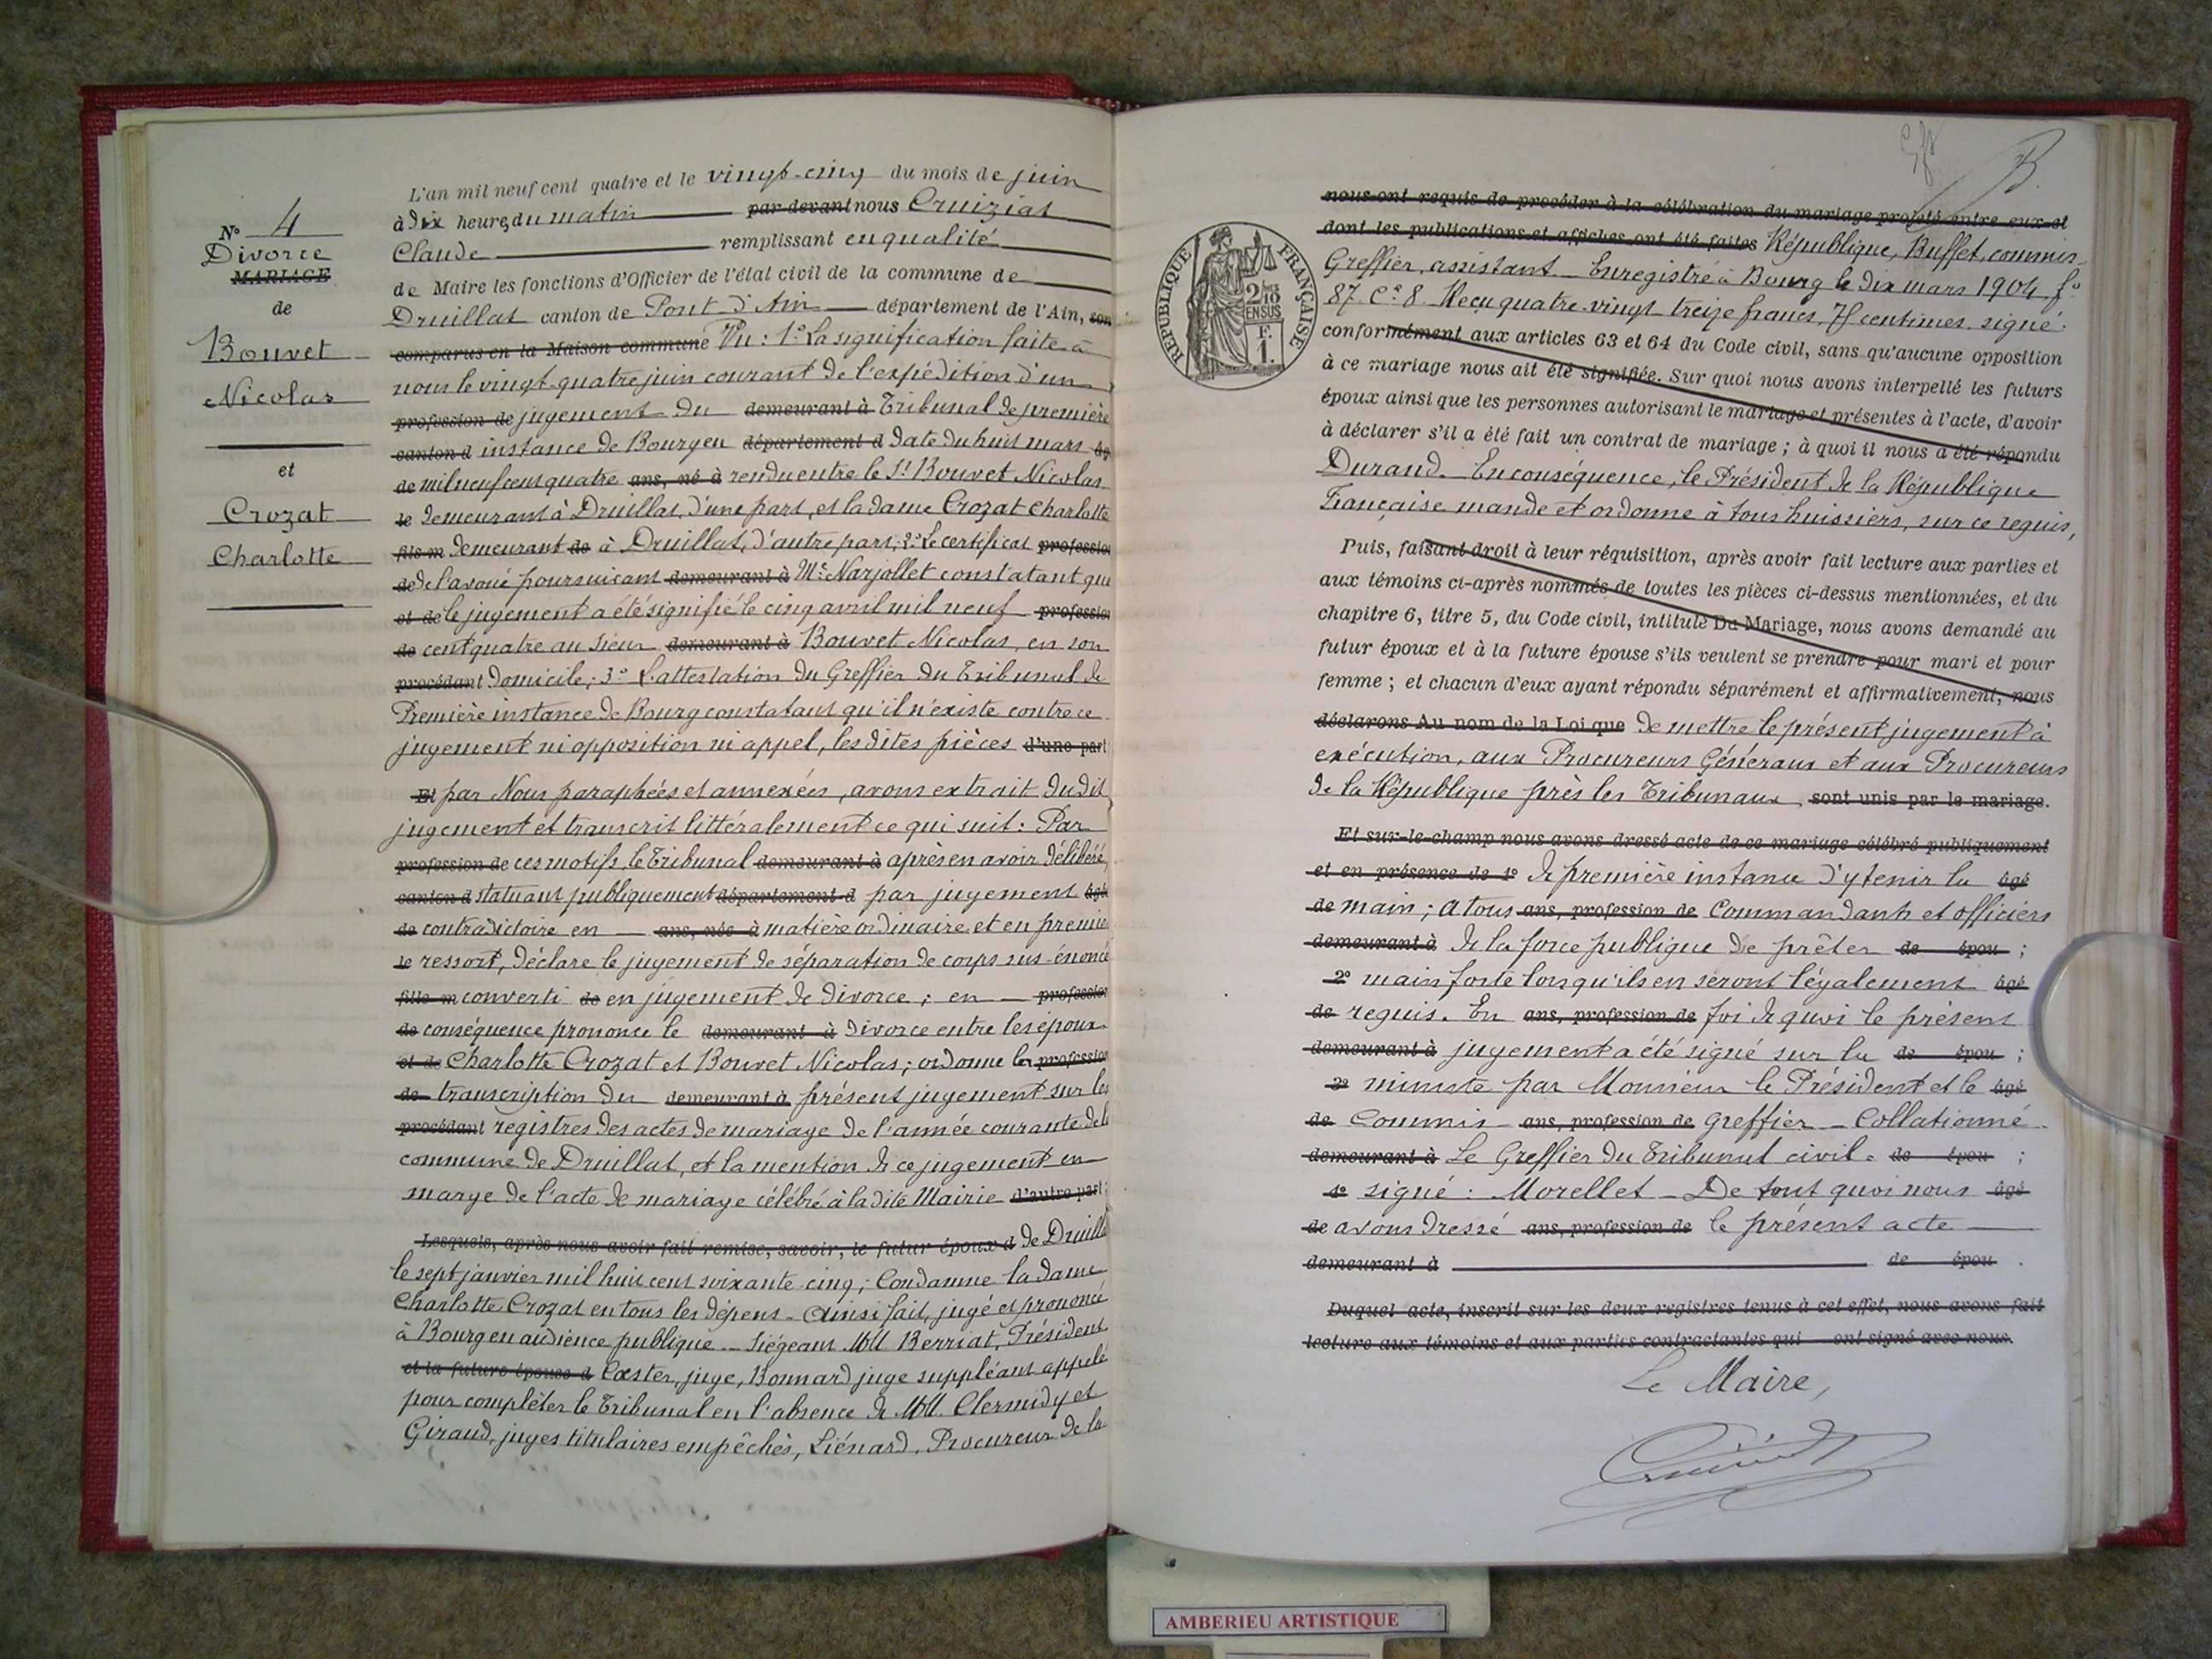 L'an mil neuf cent quatre et le vingt-cinq du mois de juin
à dix heures du matin par devant nous Cruiziat
Claude remplissant en qualité
de Maire les fonctions d'Officier de l'état civil de la commune de
Druillat canton de Pont-d'Ain département de l'Ain, son
comparus en la Maison commune Vu : 1º La signification faite à
nous le vingt-quatre juin courant de l'expédition d'un
profession de jugement du demeurant à Tribunal de première
canton d instance de Bourg en département d date du huit mars âg
de mil neuf cent quatre ans, né à rendu entre le Sr Bouvet Nicolas
le demeurant à Druillat, d'une part, et la dame Crozat Charlotte
fils m demeurant de à Druillat, d'autre part; 2º Le certificat profession
de de l'avoué poursuivant demeurant à Me Narjollet constatant que
et de le jugement a été signifié le cinq avril mil neuf profession
de cent quatre au sieur demeurant à Bouvet Nicolas, en son
procédant domicile; 3º L'attestation du Greffier du Tribunal de
Première instance de Bourg constatant qu'il n'existe contre ce
jugement ni opposition ni appel, les dites pièces d'une part
Et par Nous paraphées et annexées, avons extrait dudit
jugement et transcrit littéralement ce qui suit : Par
profession de ces motifs, le Tribunal demeurant à après en avoir délibéré,
canton d statuant publiquement département d par jugement âgé
de contradictoire en ans, née à matière ordinaire et en premier
le ressort, déclare le jugement de séparation de corps sus-énoncé
fille m converti de en jugement de divorce; en profession
de conséquence prononce le demeurant à divorce entre les époux
et de Charlotte Crozat et Bouvet Nicolas; ordonne la profession
de transcription du demeurant à présent jugement sur les
procédant registres des actes de mariage de l'année courante de la
commune de Druillat, et la mention de ce jugement en
marge de l'acte de mariage célébré à la dite Mairie d'autre part;
Lesquels, après nous avoir fait remise, savoir, le futur époux d de Druillat
le sept janvier mil huit cent soixante cinq; Condamne la dame
Charlotte Crozat en tous les dépens. Ainsi fait, jugé et prononcé
à Bourg en audience publique. Siégeant MM Berriat, Président
et la future épouse d Coester, juge, Bonnard juge suppléant appelé
pour compléter le Tribunal en l'absence de MM. Clermidy et
Giraud, juges titulaires empêchés, Liénard, Procureur de la
Nº 4
Divorce
MARIAGE
de
Bouvet
Nicolas
et
Crozat
Charlotte
nous ont requis de procéder à la célébration du mariage projeté entre eux et
dont les publications et affiches ont été faites République, Buffet, commis-
Greffier, assistant. Enregistré à Bourg le dix mars 1904 fº
87. Ce 8. Reçu quatre-vingt treize francs, 75 centimes. signé :
conformément aux articles 63 et 64 du Code civil, sans qu'aucune opposition
à ce mariage nous ait été signifiée. Sur quoi nous avons interpellé les futurs
époux ainsi que les personnes autorisant le mariage et présentes à l'acte, d'avoir
à déclarer s'il a été fait un contrat de mariage ; à quoi il nous a été répondu
Durand. En conséquence, le Président de la République
Française mande et ordonne à tous huissiers, sur ce requis,
Puis, faisant droit à leur réquisition, après avoir fait lecture aux parties et
aux témoins ci-après nommés de toutes les pièces ci-dessus mentionnées, et du
chapitre 6, titre 5, du Code civil, intitulé Du Mariage, nous avons demandé au
futur époux et à la future épouse s'ils veulent se prendre pour mari et pour
femme ; et chacun d'eux ayant répondu séparément et affirmativement, nous
déclarons Au nom de la Loi que de mettre le présent jugement à
exécution, aux Procureurs Généraux et aux Procureurs
de la République près les Tribunaux, sont unis par le mariage.
Et sur-le-champ nous avons dressé acte de ce mariage célébré publiquement
et en présence de 1º de première instance d'y tenir la âgé
de main; à tous ans, profession de Commandants et officiers
demeurant à de la force publique de prêter de épou ;
2º main forte lorsqu'ils en seront légalement âgé
de requis. En ans, profession de foi de quoi le présent
demeurant à jugement a été signé sur la de épou ;
3º minute par Monsieur le Président et le âgé
de Commis ans, profession de greffier - Collationné
demeurant à Le Greffier du Tribunal civil. de épou ;
4º signé : Morellet - De tout quoi nous âgé
de avons dressé ans, profession de le présent acte
demeurant à de épou .
Duquel acte, inscrit sur les deux registres tenus à cet effet, nous avons fait
lecture aux témoins et aux parties contractantes qui ont signé avec nous.
Le Maire,
RÉPUBLIQUE FRANÇAISE
2/10
EN SUS
F.
1.
AMBERIEU ARTISTIQUE